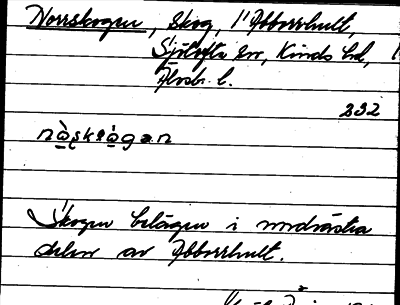 Norrskogen, skog, i Abborrhult,
Sjötofta sn, Kinds hd,
Älvsb. l.
232
nò̱ʂkɷ̀gan
Skogen belägen i nordvästra
delen av Abborrhult.